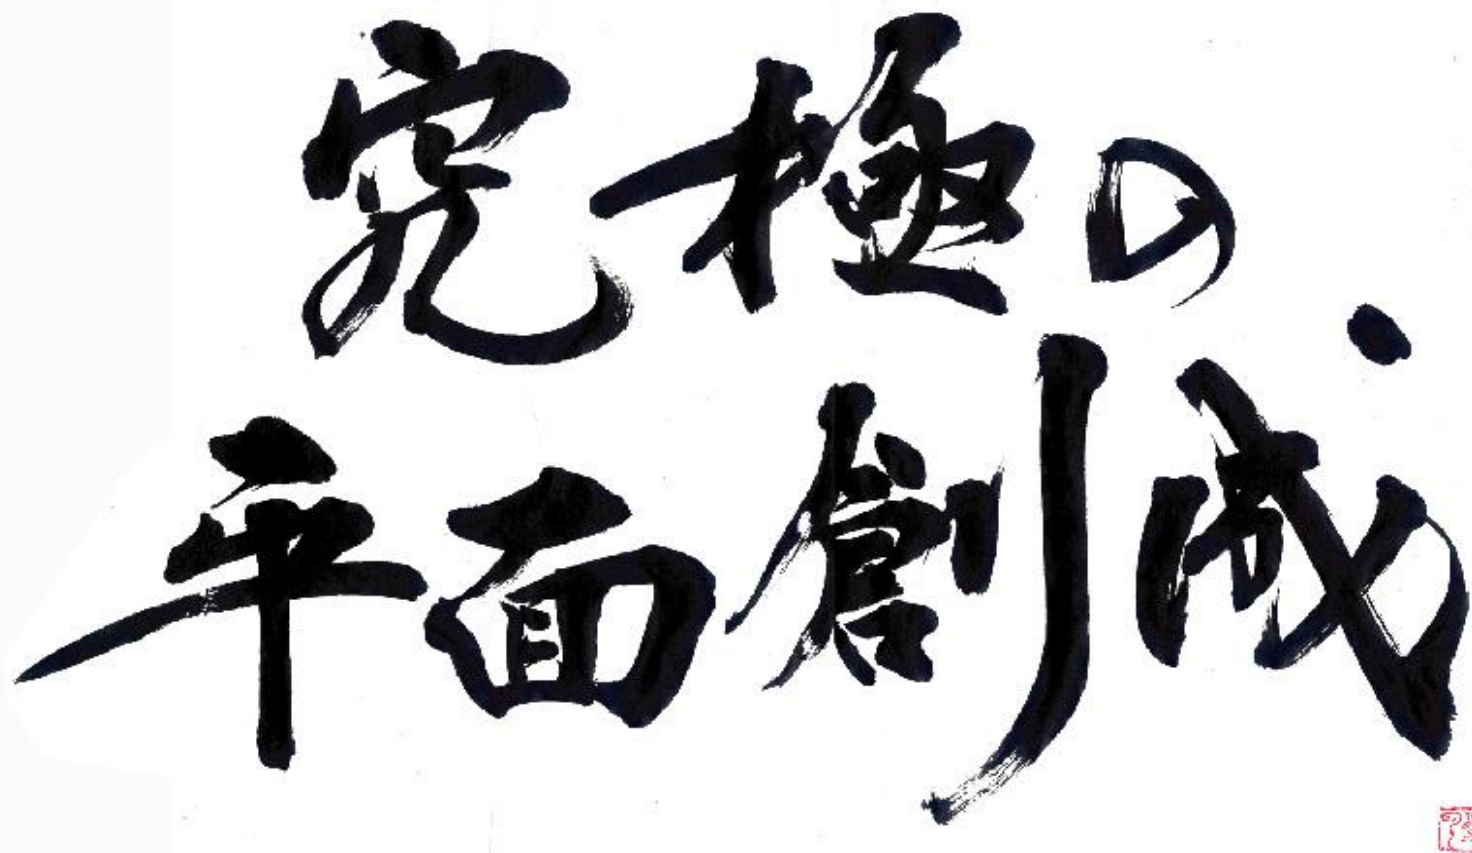 究極の
平面創成